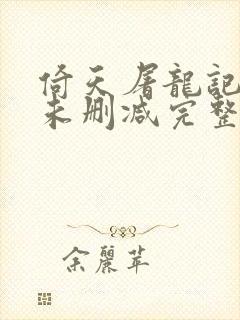 倚天屠龍記
未刪减完整
余麗苹